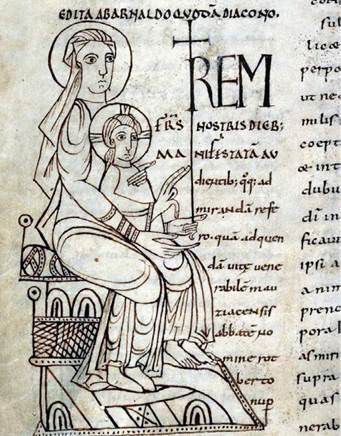 EDITA AB ARNALDO QUODĀ DIACONO.
REM
FR̅S NOSTRIS DIEB;
MANIFESTATĀ AU
dientib; q;q; ad
mirandā refe
ro. quā ad quen
dā vitę vene
rabilē mau
ziacensis
abbatē no
mine rot
berto
nup
perpo
ut ne
milis
coept
dubu
dm̄ in
ficaui
ipsi a
anim
prenc
poral
supra
quas
nerab